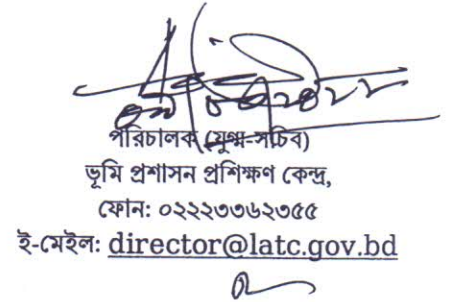 পরিচালক (যুগ্ম-সচিব)
ভূমি প্রশাসন প্রশিক্ষণ কেন্দ্র,
ফোন: ০২২২৩৩৬২৩৫৫
ই-মেইল: director@latc.gov.bd